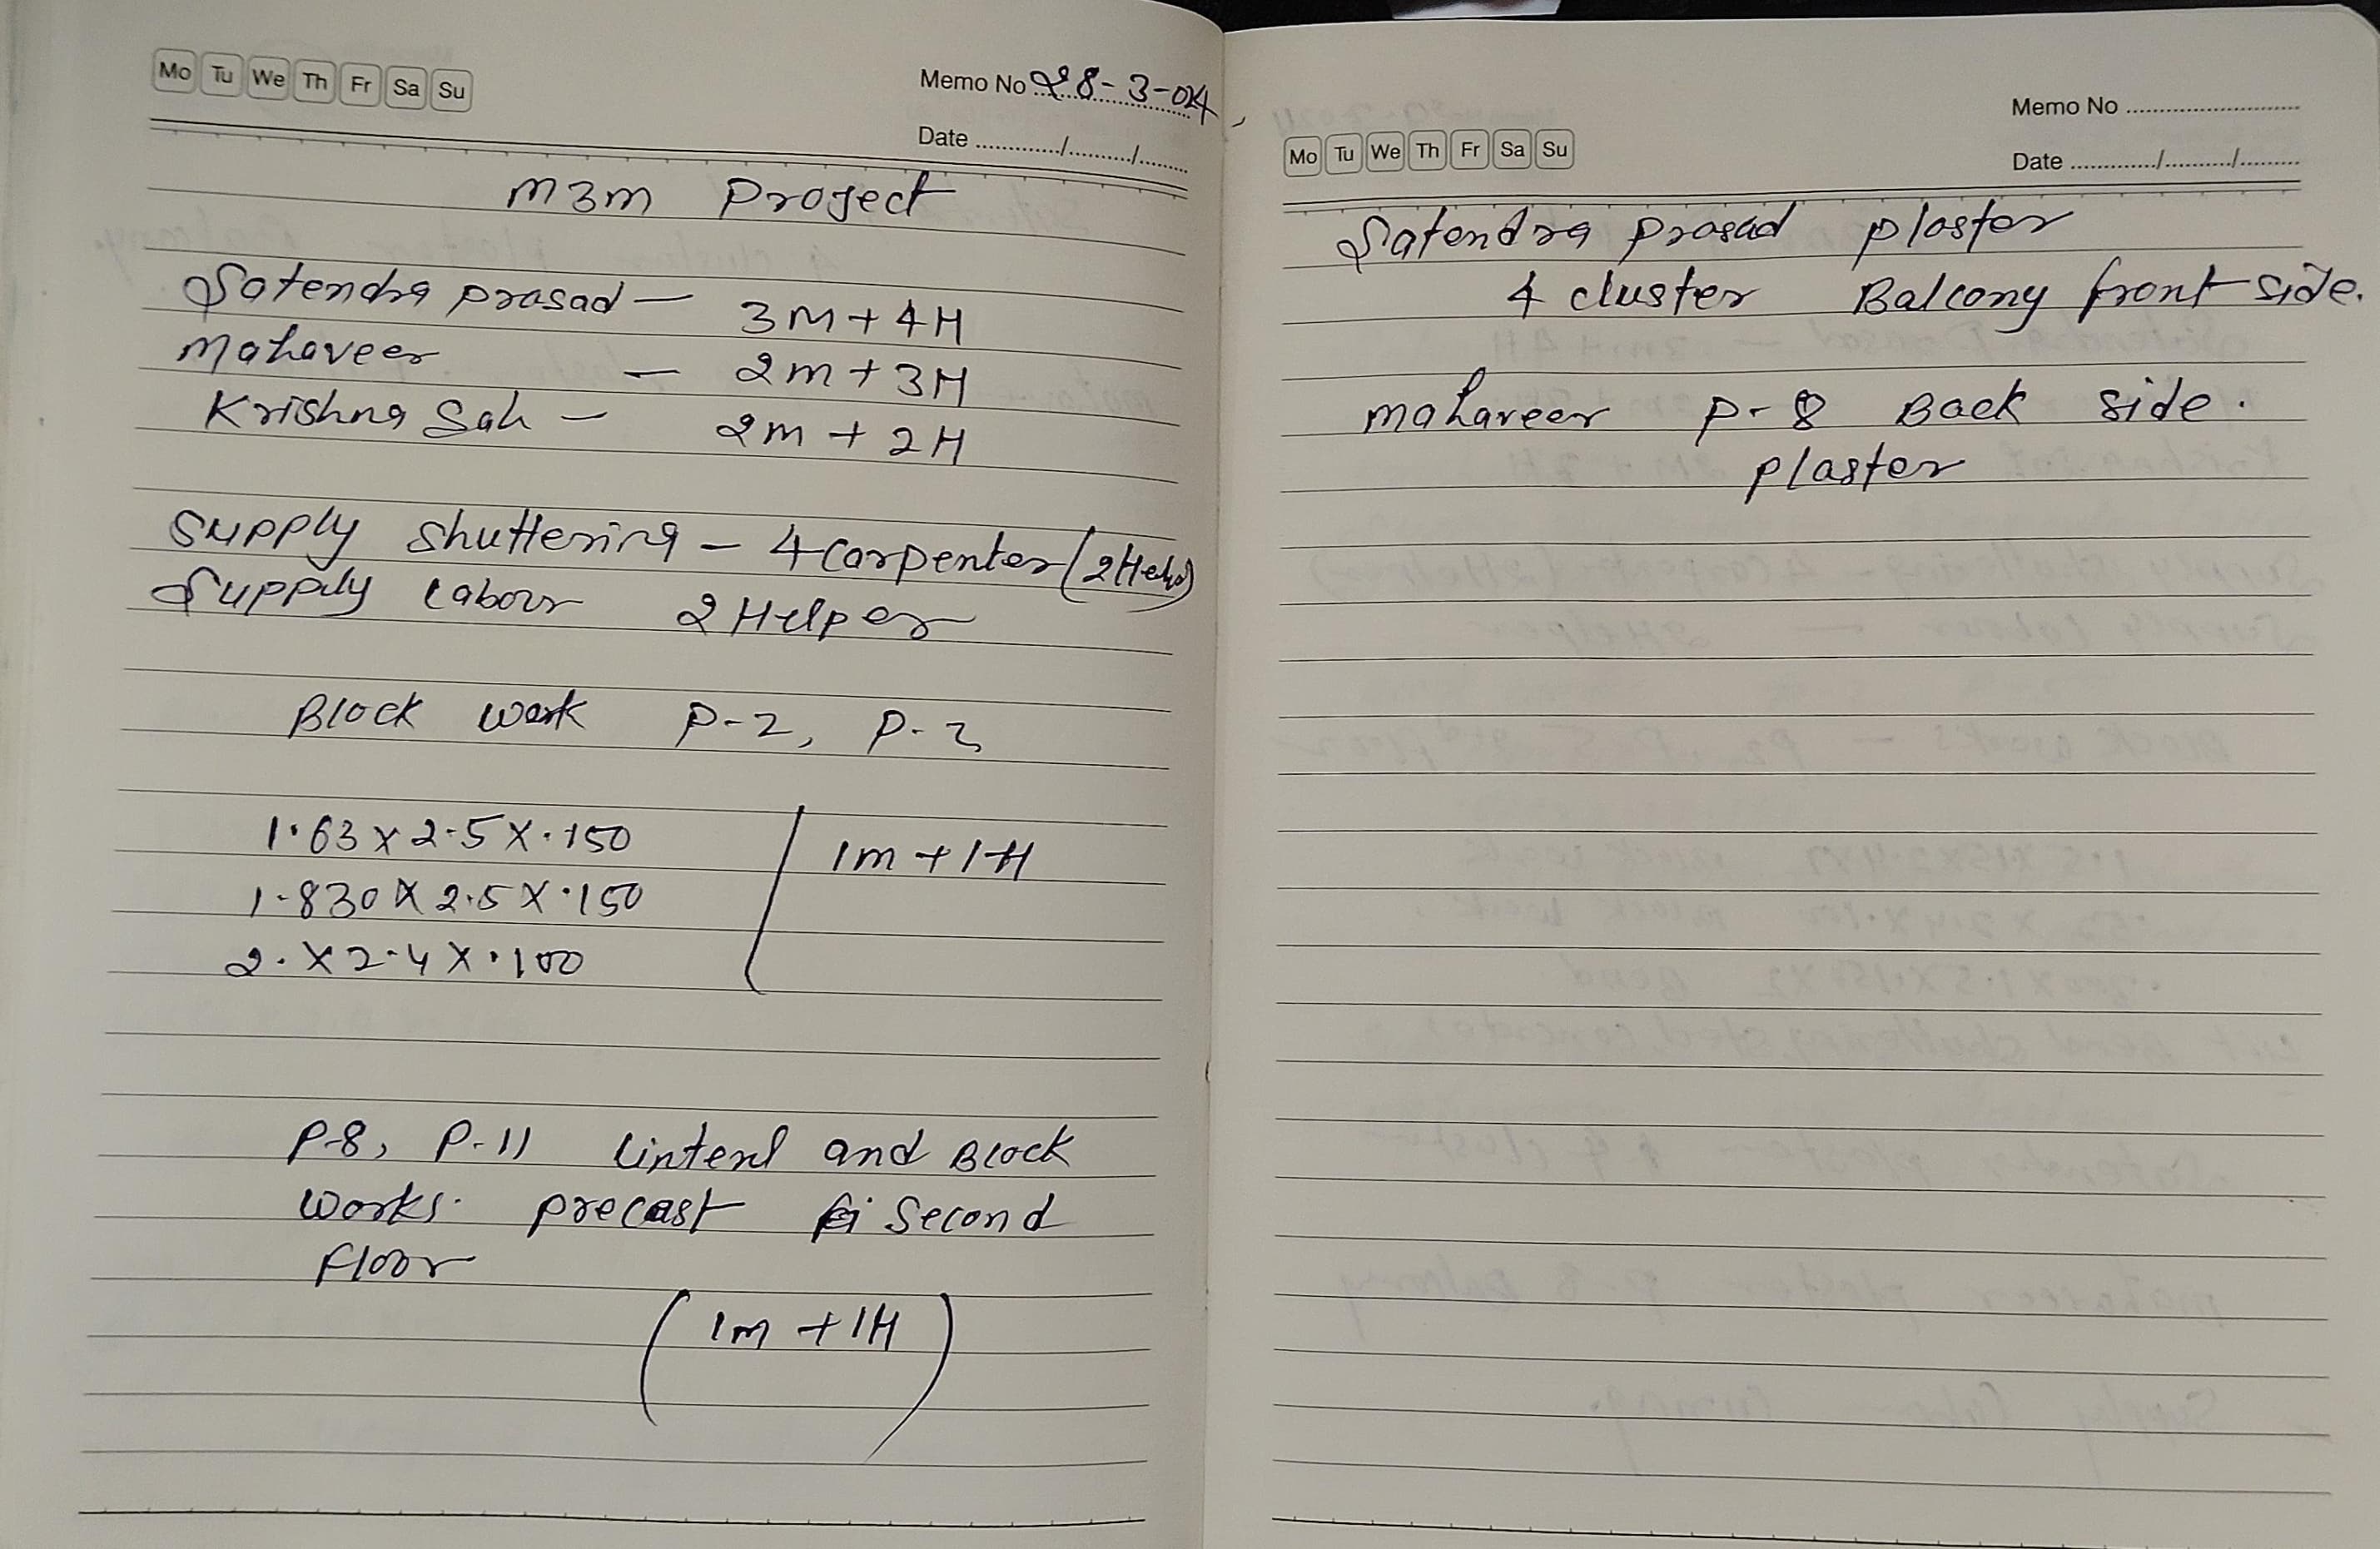 Mo Tu We Th Fr Sa Su
Memo No 28-3-024
Date ............./........../........
m3m Project
Satendra prasad — 3M+4H
Mahaveer — 2m+3H
Krishna Sah — 2m+2H
Supply shuttering — 4 Carpenter (2Help)
Supply Labour 2 Helper
Block work P-2, P-3
1.63 x 2.5 x .150
1m+1H
1.830 x 2.5 x .150
2. x 2.4 x .100
P-8, P-11 Lintenl and Block
works. precast Second
floor
(1m+1H)
Memo No ..............................
Mo Tu We Th Fr Sa Su
Date ............./........../.........
Satendra prasad plaster
4 cluster Balcony front side.
mahaveer p-8 Back side.
plaster